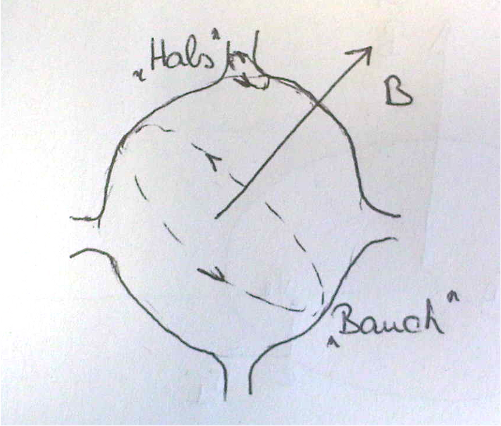 „Hals“
B
„Bauch“